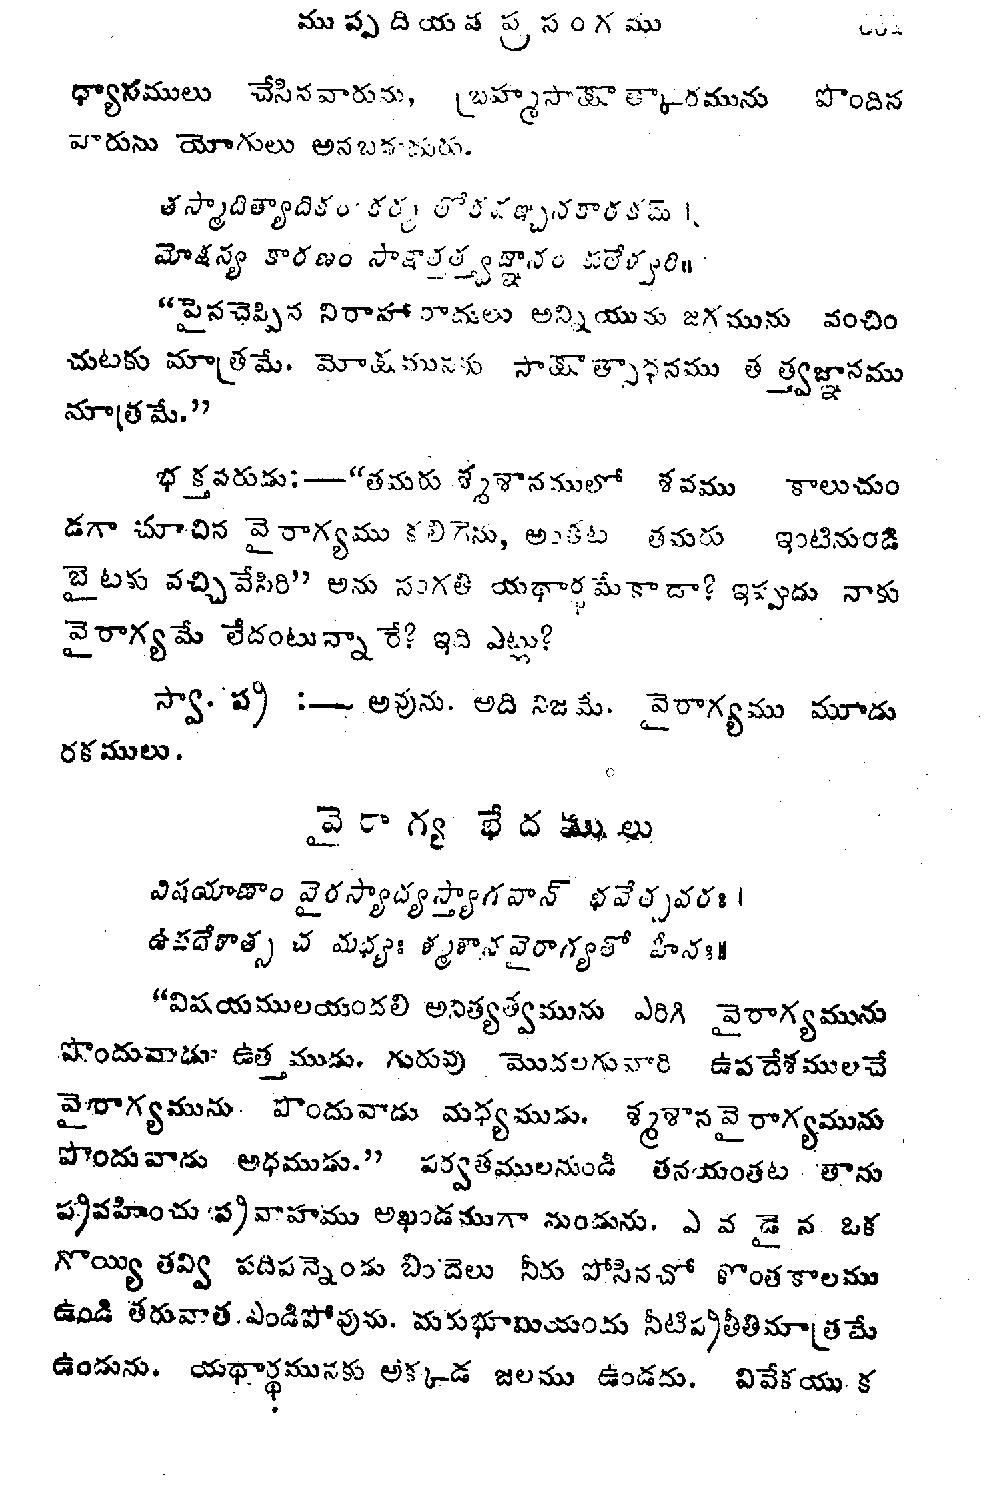 ముప్పదియవ ప్రసంగము
ధ్యానములు చేసినవారును, బ్రహ్మసాక్షాత్కారమును పొందిన
వారును యోగులు అనబడుదురు.
తస్మాదిత్యాదికం కర్మ లోకవఞ్చనకారకమ్ ।
మోక్షస్య కారణం సాక్షాత్తత్త్వజ్ఞానం పరేశ్వరి॥
“పైనచెప్పిన నిరాహారాదులు అన్నియును జగమును వంచిం
చుటకు మాత్రమే. మోక్షమునకు సాక్షాత్సాధనము తత్త్వజ్ఞానము
మాత్రమే.”
భక్తవరుడు:—“తమరు శ్మశానములో శవము కాలుచుం
డగా చూచిన వైరాగ్యము కలిగెను, అంతట తమరు ఇంటినుండి
బైటకు వచ్చివేసిరి” అను సంగతి యథార్థమేకాదా? ఇప్పుడు నాకు
వైరాగ్యమే లేదంటున్నారే? ఇది ఎట్లు?
స్వా. ప్ర :— అవును. అది నిజమే. వైరాగ్యము మూడు
రకములు.
వైరాగ్య భేదములు
విషయాణాం వైరస్యాద్యస్త్యాగవాన్ భవేత్ప్రవరః ।
ఉపదేశాత్స చ మధ్యః శ్మశానవైరాగ్యతో హీనః॥
“విషయములయందలి అనిత్యత్వమును ఎరిగి వైరాగ్యమును
పొందువాడు ఉత్తముడు. గురువు మొదలగువారి ఉపదేశములచే
వైరాగ్యమును పొందువాడు మధ్యముడు. శ్మశానవైరాగ్యమును
పొందువాడు అధముడు.” పర్వతములనుండి తనయంతట తాను
ప్రవహించు ప్రవాహము అఖండముగా నుండును. ఎవడైన ఒక
గొయ్యి తవ్వి పదిపన్నెండు బిందెలు నీరు పోసినచో కొంతకాలము
ఉండి తరువాత ఎండిపోవును. మరుభూమియందు నీటిప్రతీతిమాత్రమే
ఉండును. యథార్థమునకు అక్కడ జలము ఉండదు. వివేకయుక